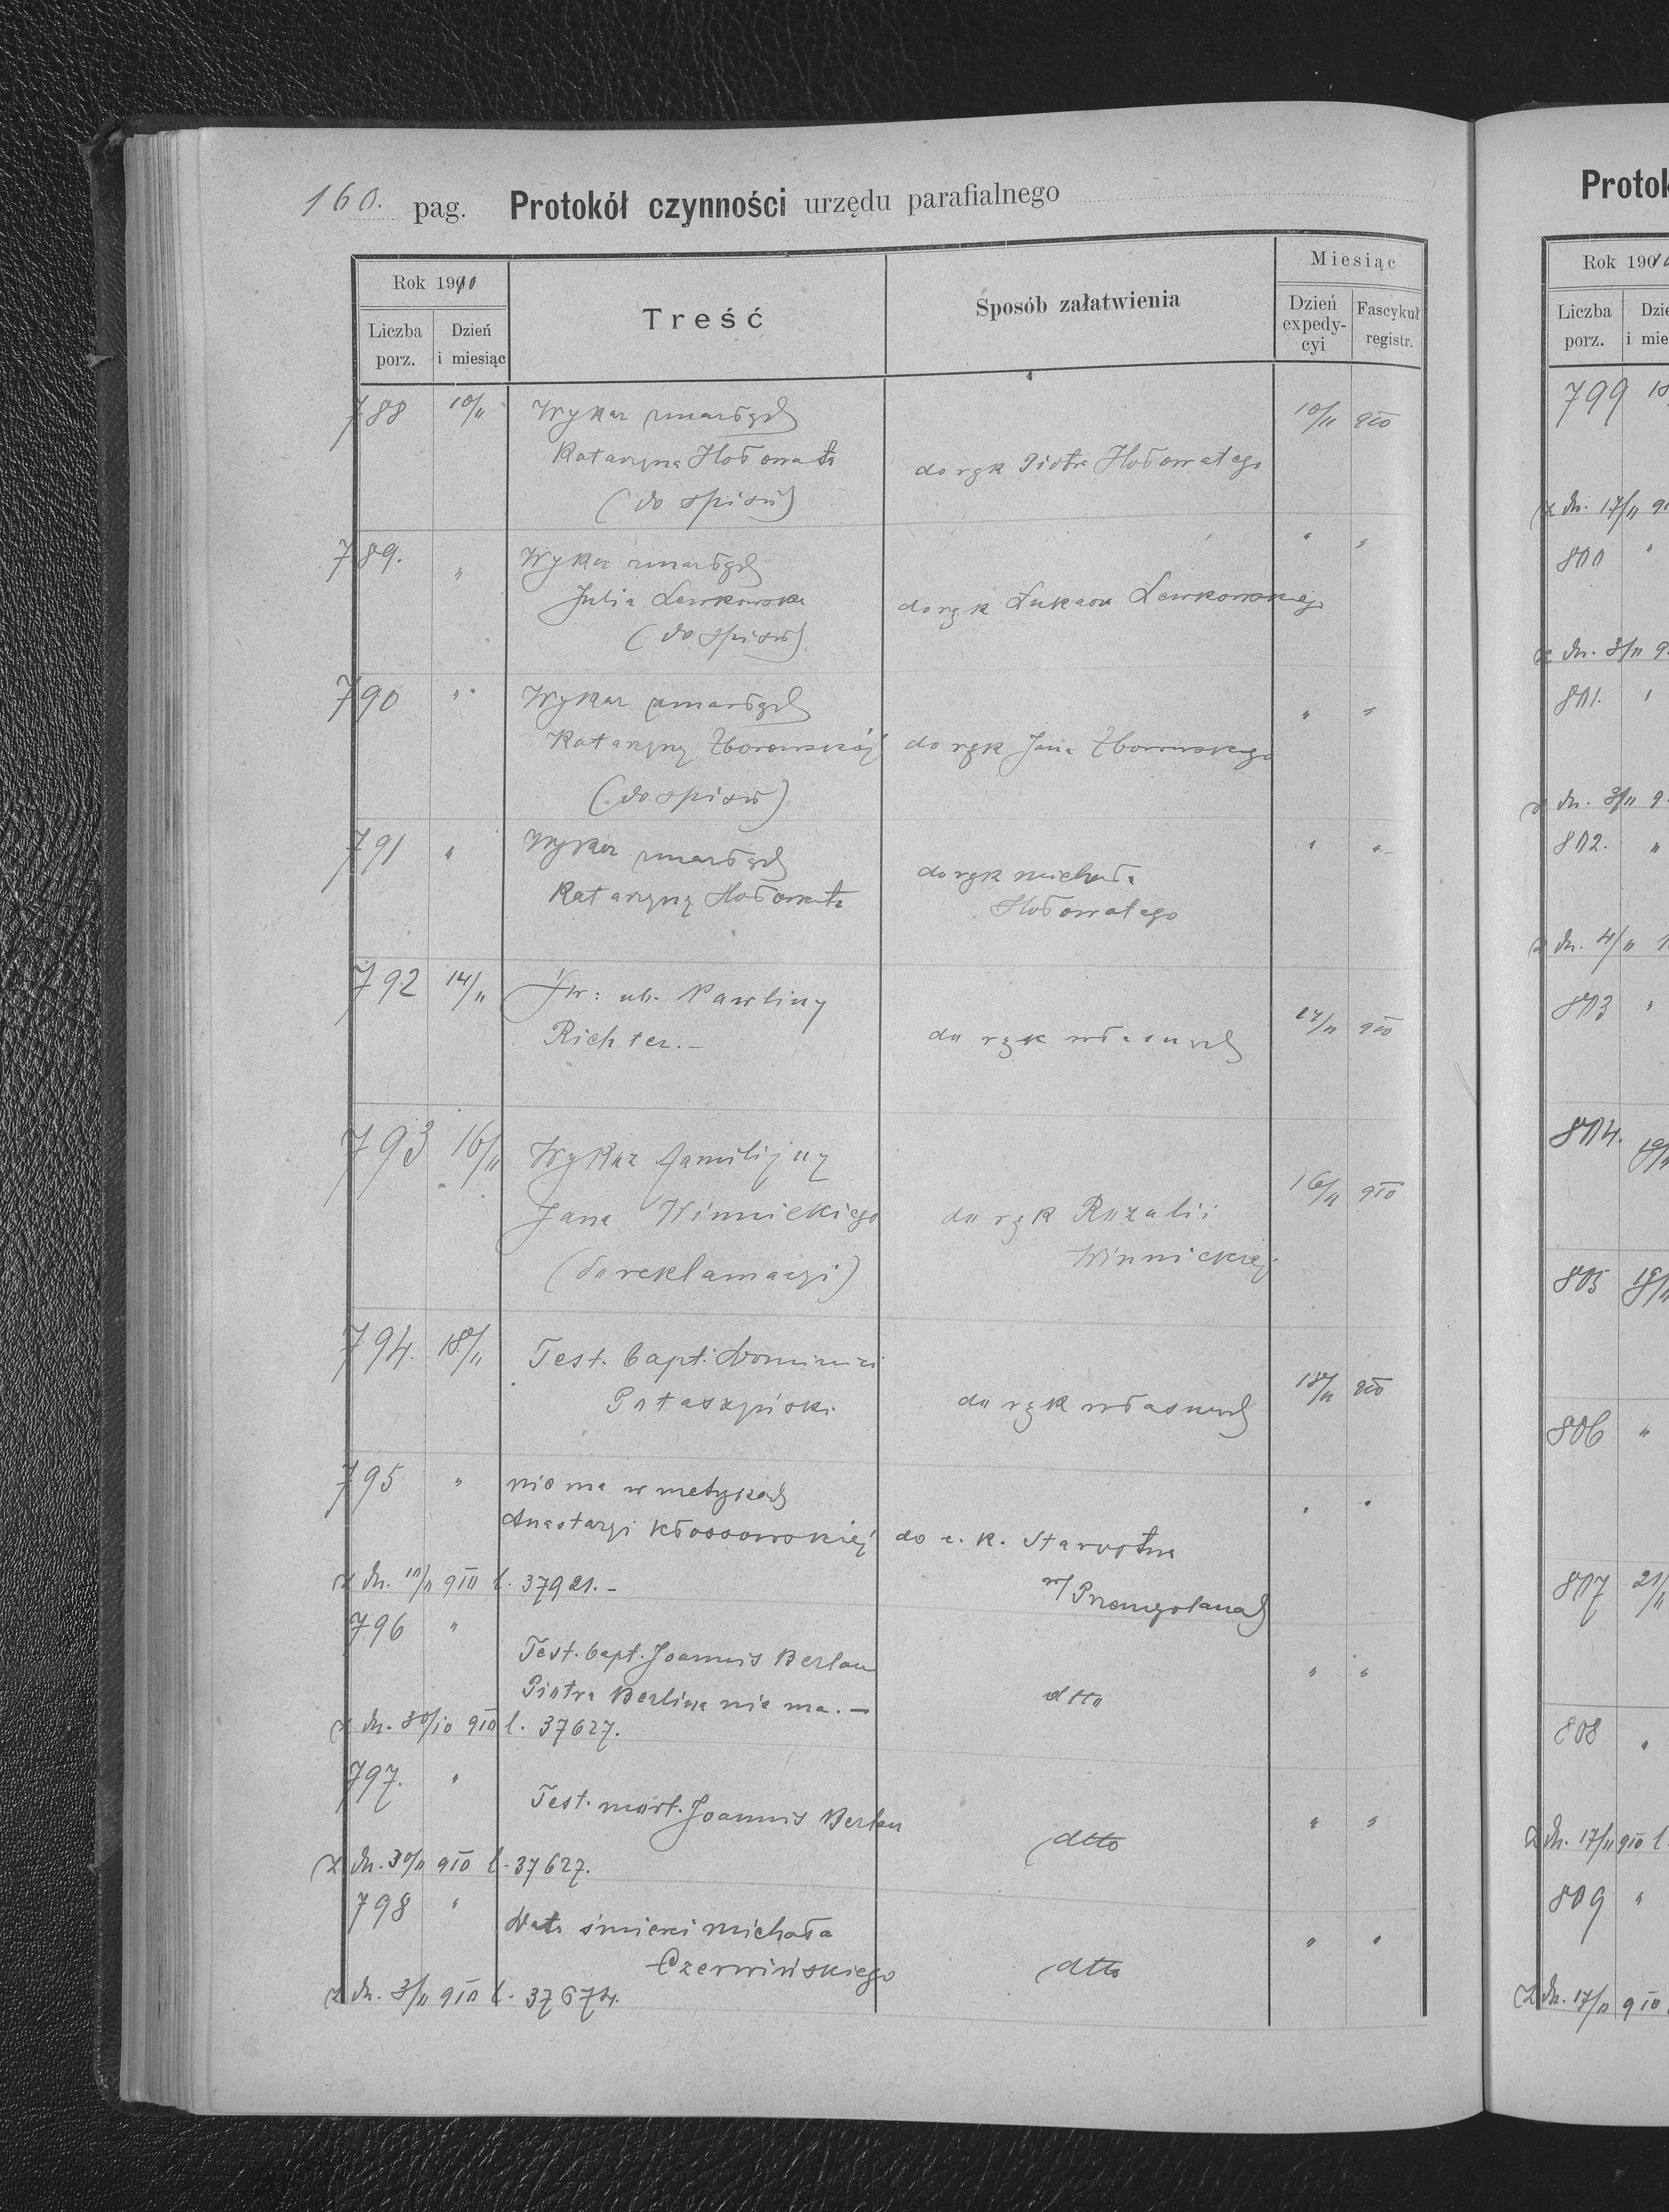 160. pag. Protokół czynności urzędu parafialnego
Rok 1910
Liczba porz.
Dzień i miesiąc
Treść
Sposób załatwienia
Miesiąc
Dzień expedycyi
Fascykuł registr.
788 10/11 Wykaz zmarłych 10/11 910
Katarzyna Hołowata do rąk Piotra Hołowatego
(do spisu)
789. " Wykaz zmarłych " "
Julia Lewkowska do rąk Łukasza Lewkowskiego
(do spisu)
790 " Wykaz zmarłych " "
Katarzyny Zborowskiej do rąk Jana Zborowskiego
(do spisu)
791 " Wykaz zmarłych " "
Katarzyny Hołowata do rąk Michała
Hołowatego
792 14/11 św: ub. Pawliny
Richter.– do rąk własnych 14/11 910
793 16/11 Wykaz familijny 16/11 910
Jana Winnickiego do rąk Rozalii
(do reklamacyi) Winnickiej
794. 18/11 Test. bapt. Dominici 18/11 910
do rąk własnych
795 " nie ma w metrykach " "
Anastazyi Kłossowskiej do c. k. Starostwa
z dn. 10/11 910 l. 37921.– w Przemyślanach
796 " Test. bapt. Joannis Berlan " "
Piotra Berlina nie ma.– dtto
z dn. 30/10 910 l. 37627.
797. " Test. mort. Joannis Berlan " "
dtto
z dn. 30/11 910 l. 37627.
798 " Data śmierci Michała " "
Czerwińskiego dtto
z dn. 3/11 910 l. 37674.
Protok
Rok 1910
Liczba porz.
799
z dn. 17/11
800 "
z dn. 3/11 9
801. "
z dn. 3/11 9
802. "
z dn. 4/11 1
803 "
804. 19/11
805 19/11
806 "
807 21/11
808 "
z dn. 17/11 910 l.
809 "
z dn. 17/11 910